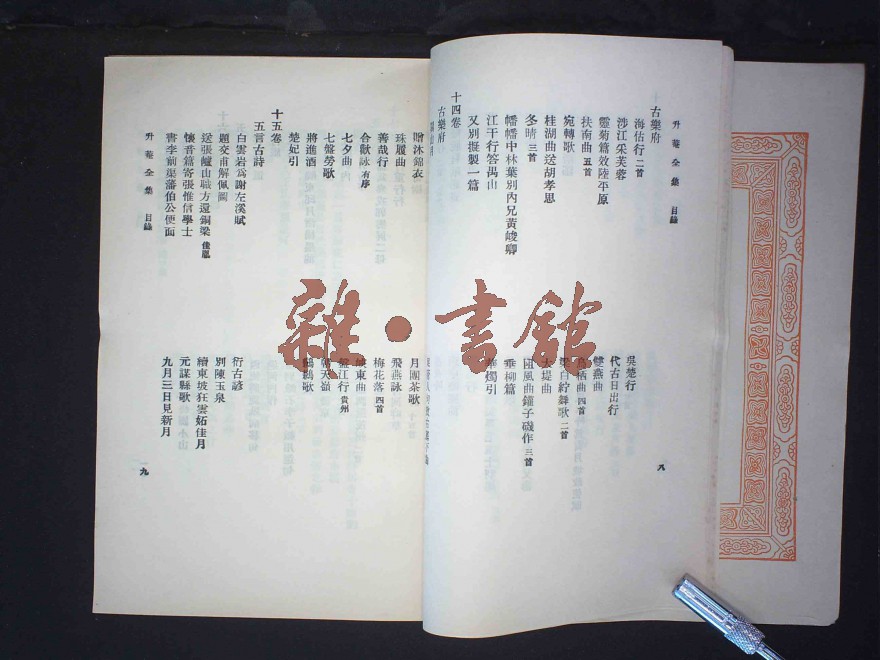 升菴全集 目錄
八
古樂府
海估行二首
涉江采芙蓉
靈菊篇效陸平原
扶南曲五首
宛轉歌
桂湖曲送胡孝思
冬晴三首
幡幡中林葉別內兄黃峻卿
江干行答禺山
又別擬製一篇
十四卷
古樂府
吳楚行
代古日出行
雙燕曲
栖曲四首
白紵舞歌二首
大堤曲
風曲鐘子磯作三首
垂柳篇
華燭引
贈沐錦衣
珠履曲
善哉行
合歡詠有序
七夕曲
七盤勞歌
將進酒
楚妃引
十五卷
五言古詩
白雲岩爲謝左溪賦
題交甫解佩圖
送張臚山職方還銅梁佳胤
懷音篇寄張惟信學士
書李前渠藩伯公便面
月團茶歌
飛燕詠
梅花落四首
東曲
盤江行貴州
天嶺
鶴歌
衍古諺
別陳玉泉
續東坡狂雲妬佳月
元謀縣歌
九月三日見新月
升菴全集 目錄
九
雜·書館